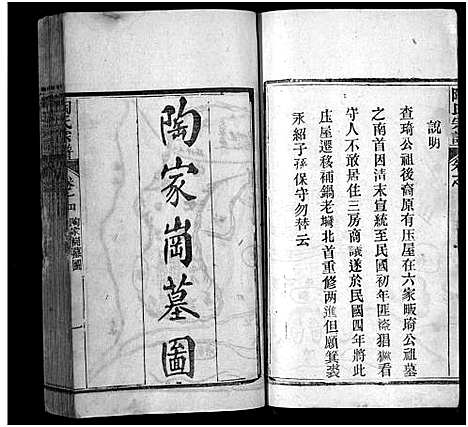 說明
查琦公祖後裔原有庄屋在六家畈琦公祖墓
之南首因清末宣統至民國初年匪盜猖獗看
守人不敢居住三房商議遂於民國四年將此
庄屋遷移補鍋老墈北首重修两進但願箕裘
永紹子孫保守勿替云
陶家崗墓圖
陶家崗墓圖
一